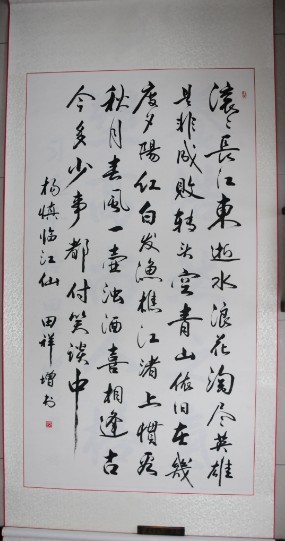 滚〻長江東逝水浪花淘尽英雄
是非成败转头空青山依旧在幾
度夕陽红白发渔樵江渚上惯看
秋月春風一壶浊酒喜相逢古
今多少事都付笑谈中
杨慎临江仙 田祥增书